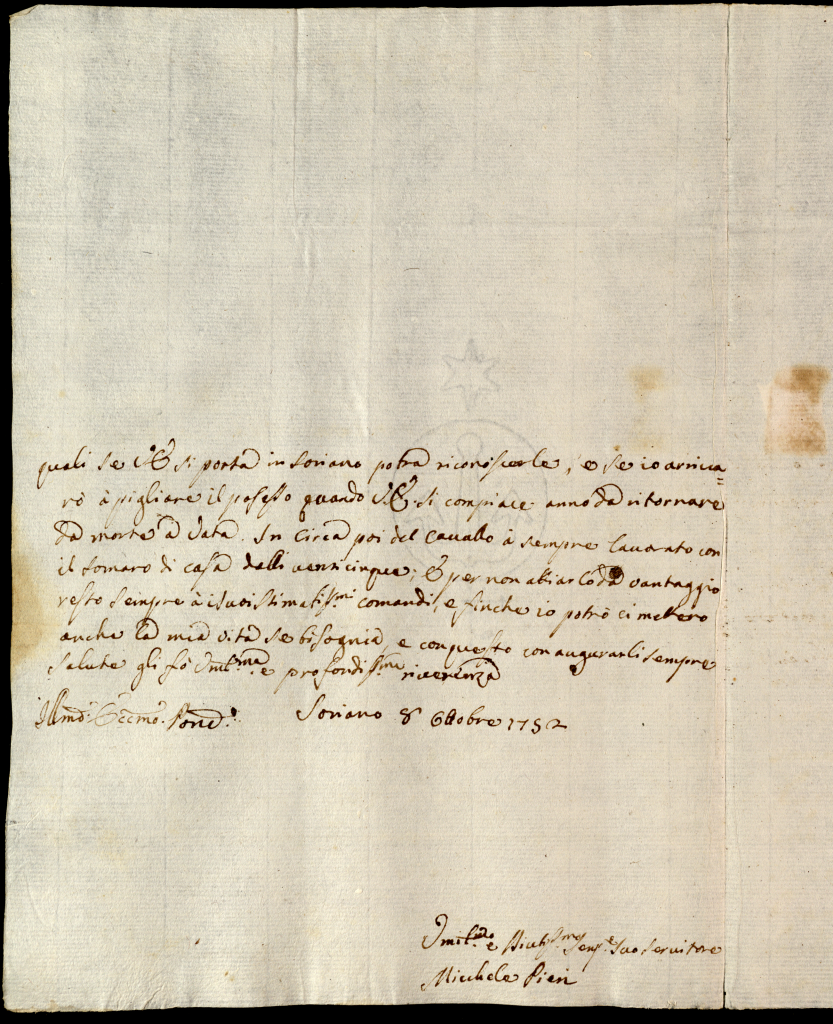 quali se V.E. si porta in Soriano potrà riconoscerle, e se io arriva=
rò à pigliare il posesso quando V.E. si compiace anno da ritornare
da morte a vata. In circa poi del cavallo à sempre lavorato con
il somaro di casa dalli venti cinque; E per non vantaggio
resto sempre à i suoi stimatiss.mi comandi, e finche io potrò ci metterò
anche la mia vita se bisognia, e con questo con augurarli sempre
salute gli fò Umil.ma e profondiss.ma riverenza
Illmo. Eccmo. Pond.e Soriano 8 Ottobre 1752
Umil.mo e Semp.e Suo Servitore
Michele Pieri